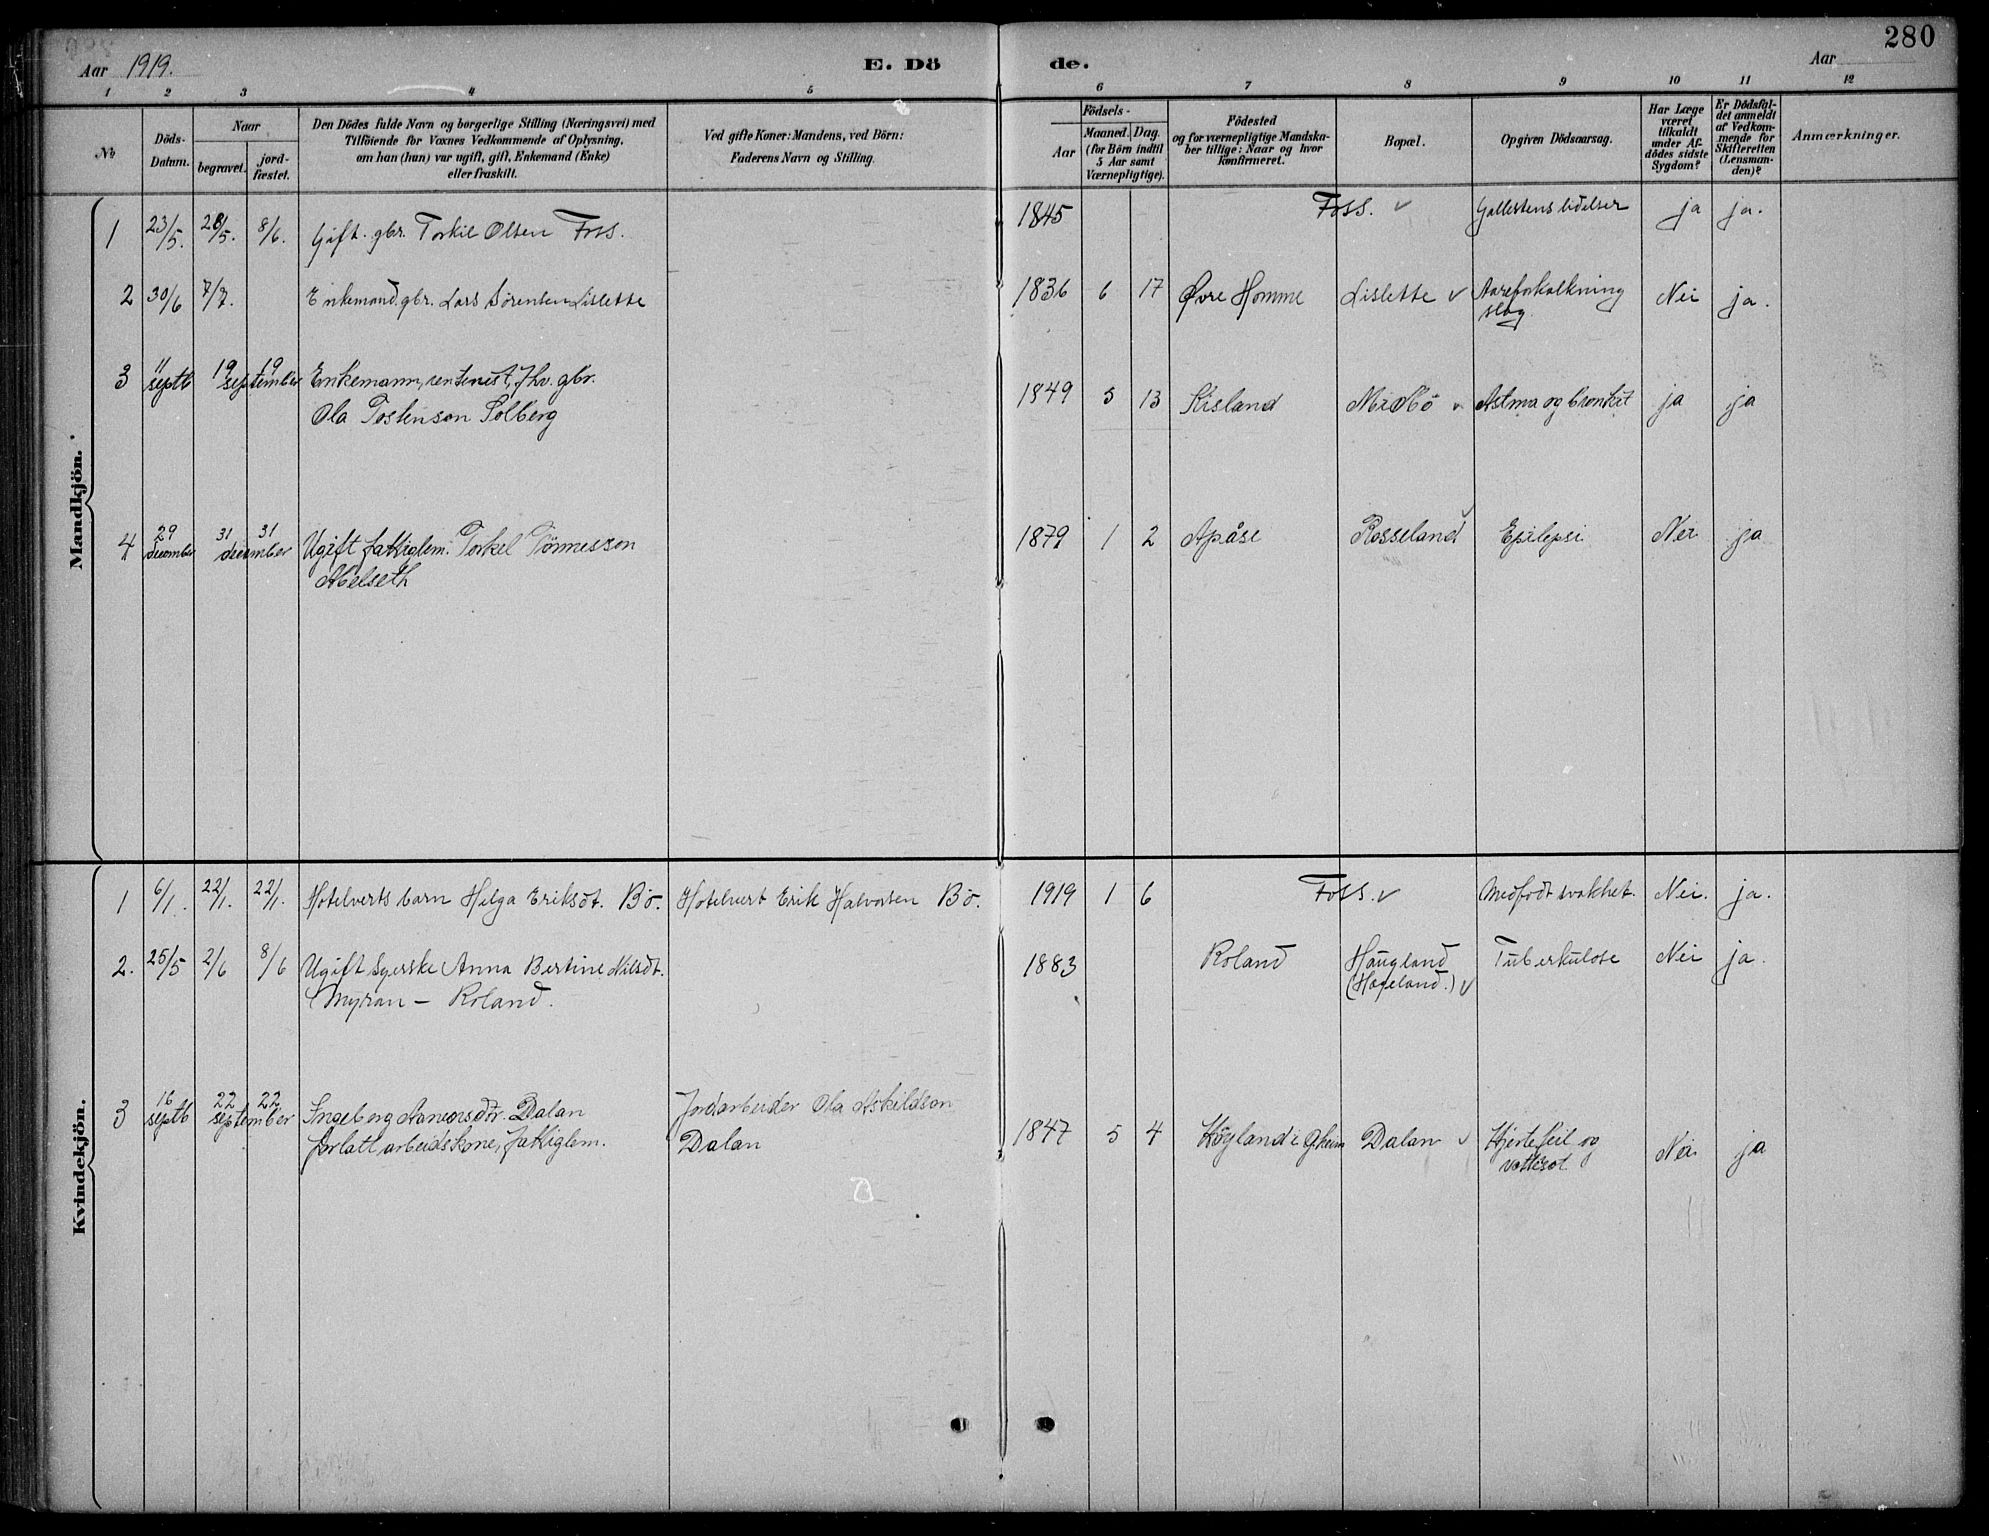 280
Aar 1919. E. Dö de. Aar
1 2 3 4 5 6 7 8 9 10 11 12
No
Döds-Datum.
Naar
begravet. jord-fæstet.
Den Dödes fulde Navn og borgerlige Stilling (Næringsvei) med
Tilföiende for Voxnes Vedkommende af Oplysning,
om han (hun) var ugift, gift, Enkemand (Enke)
eller fraskilt.
Ved gifte Koner: Mandens, ved Börn:
Faderens Navn og Stilling.
Födsels-
Aar
Maaned. Dag.
(for Börn indtil
5 Aar samt
Værnepligtige).
Födested
og for værnepligtige Mandska-
ber tillige: Naar og hvor
konfirmeret.
Bopæl.
Opgiven Dödsaarsag.
Har Læge
været
tilkaldt
under Af-
dödes sidste
Sygdom?
Er Dödsfal-
det anmeldt
af Vedkom-
mende for
Skifteretten
(Lensman-
den)?
Anmærkninger.
Mandkjön.
1 23/5. 28/5. 8/6. Gift. gbr. Torkil Olsen Foss. 1845 Foss. v Gallestenslidelser ja ja.
2 30/6 7/7. Enkemand. gbr. Lars Sörensen Lislette 1836 6 17 Øvre Homme Lislette v Aareforkalkning Nei ja.
slag
3 11 septb 19 19 september Enkemann, rentenist, fhv. gbr. 1849 5 13 Stisland Midbö v Astma og bronkit ja ja
Ola Tostenson Solberg
4 29 december 31 31 december Ugift fattiglem. Torkel Tönnesson 1879 1 2 Apåse Rosseland v Epilepsi Nei ja
Abelseth
Kvindekjön.
1 6/1. 22/1. 22/1. Hotelverts barn Helga Eriksdt. Bö. Hotelvert Erik Halvorsen Bö. 1919 1 6 Foss. v Medfödt svakhet. Nei. ja.
2. 25/5 2/6 8/6 Ugift syerske Anna Bertine Nilsdt. 1883 Roland Haugland Tuberkulose Nei ja.
Myran — Roland. (Hageland.) v
3 16 septb 22 22 september Ingeborg Aanensdtr. Dalan Jordarbeider Ola Askildson 1847 5 4 Höyland i Gheim Dalan v Hjertefeil og Nei ja
forlatt arbeidskone, fattiglem. Dalan vattersot